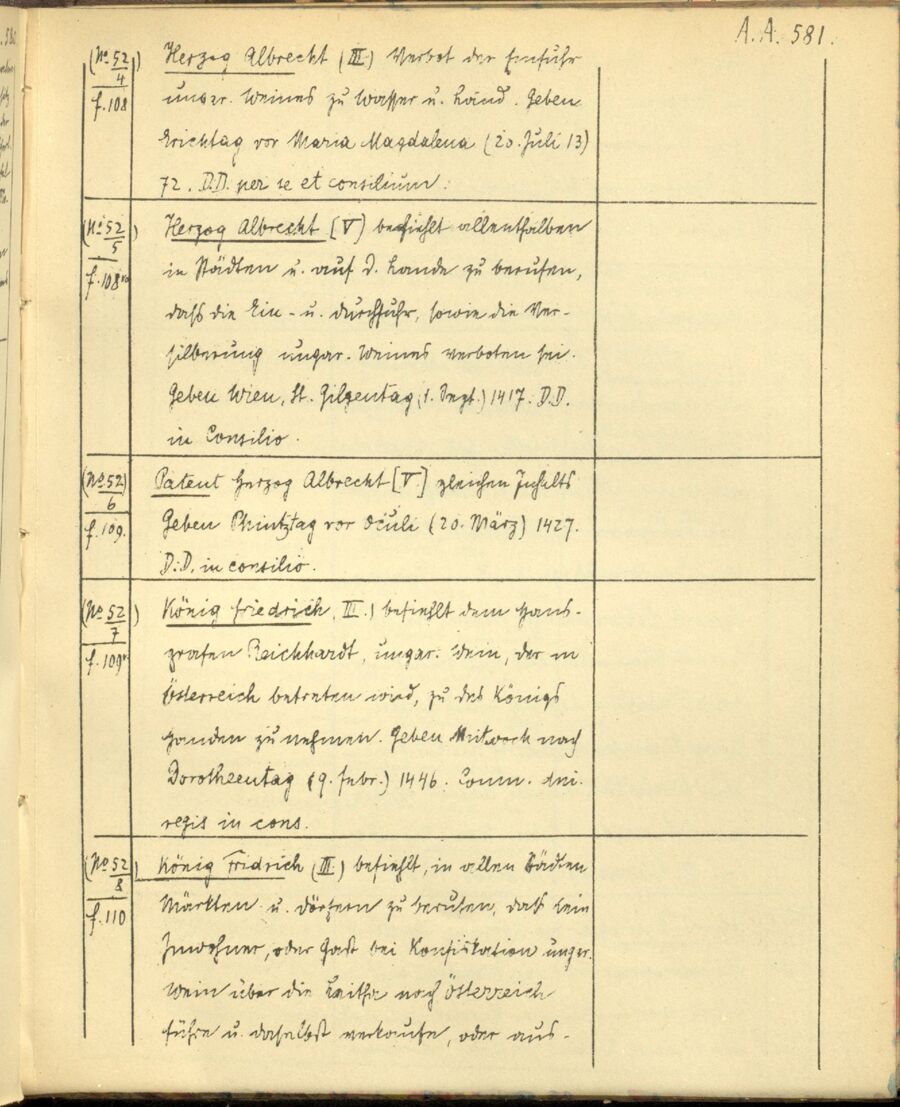 A.A. 581.
(No 52/4) f. 108
Herzog Albrecht (III.) Verbot der Einfuhr
ungar. Weines zu Wasser u. Land. Geben
Erichtag vor Maria Magdalena (20. Juli 13)
72. D.D. per se et consilium.
(No 52/5) f. 108vo
Herzog Albrecht [V] befiehlt allenthalben
in Städten u. auf d. Lande zu berufen,
dass die Ein- u. Durchfuhr, sowie die Ver-
silberung ungar. Weines verboten sei.
Geben Wien, St. Gilgentag (1. Sept.) 1417. D.D.
in Consilio.
(No 52/6) f. 109.
Patent Herzog Albrecht [V.] gleichen Inhalts
Geben Phintztag vor Oculi (20. März) 1427.
D.D. in consilio.
(No 52/7) f. 109v
König Friedrich (III.) befiehlt dem Hans-
grafen Reichhardt, ungar. Wein, der in
Österreich betreten wird, zu des Königs
Handen zu nehmen. Geben Mitwoch nach
Dorotheentag (9. Febr.) 1446. Comm. dni.
regis in cons.
(No 52/8) f. 110
König Fridrich (III.) befiehlt, in allen Städten
Märkten u. Dörfern zu berufen, dass kein
Inwohner, oder Gast bei Konfiskation ungar.
Wein über die Leitha nach Österreich
führe u. daselbst verkaufe, oder aus-